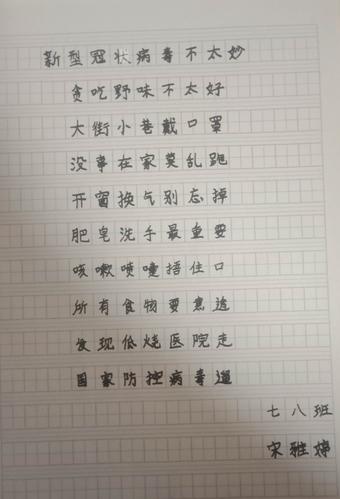 新型冠状病毒不太妙
贪吃野味不太好
大街小巷戴口罩
没事在家莫乱跑
开窗换气别忘掉
肥皂洗手最重要
咳嗽喷嚏捂住口
所有食物要煮透
发现低烧医院走
国家防控病毒逃
七八班
宋雅婷